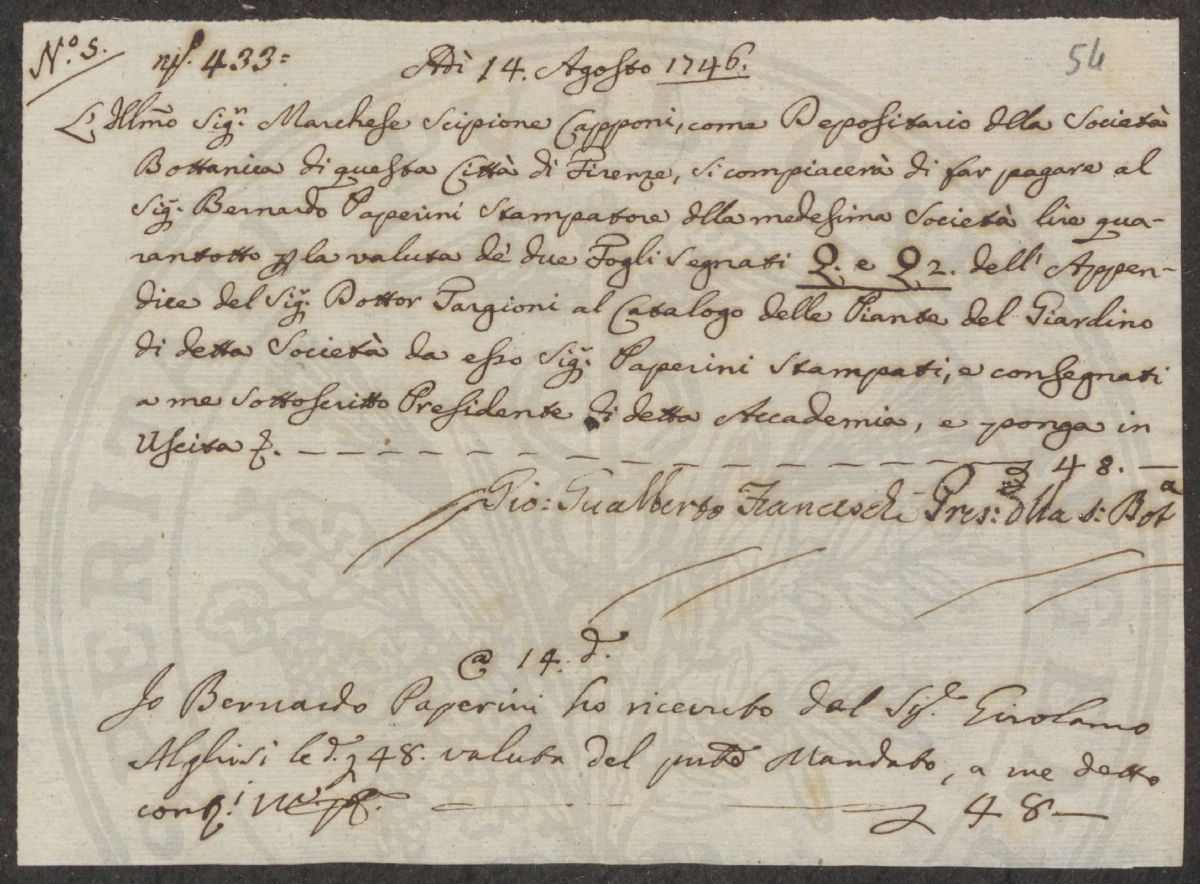 N.o 5. 433= Adì 14. Agosto 1746. 54
L'Illmo Sigr. Marchese Scipione Capponi, come Depositario dlla Società
Bottanica di questa Città di Firenze, si compiacerà di far pagare al
Sigr. Bernardo Paperini Stampatore dlla medesima Società lire qua-
rantotto p la valuta de' due Fogli segnati Q. e Q2. dell' Appen-
dice del Sigr. Dottor Targioni al Catalogo delle Piante del Giardino
di detta Società da esso Sigr. Paperini stampati, e consegnati
a me sottoscritto Presidente di detta Accademia, e ponga in
Uscita 48. —
Gio: Gualberto Franceschi Pres: dlla S: Bota
@ 14. d.
Io Bernardo Paperini ho riceuto dal Sigr. Girolamo
Alghisi le d. 48. valuta del pnte Mandato, a me detto
48 —